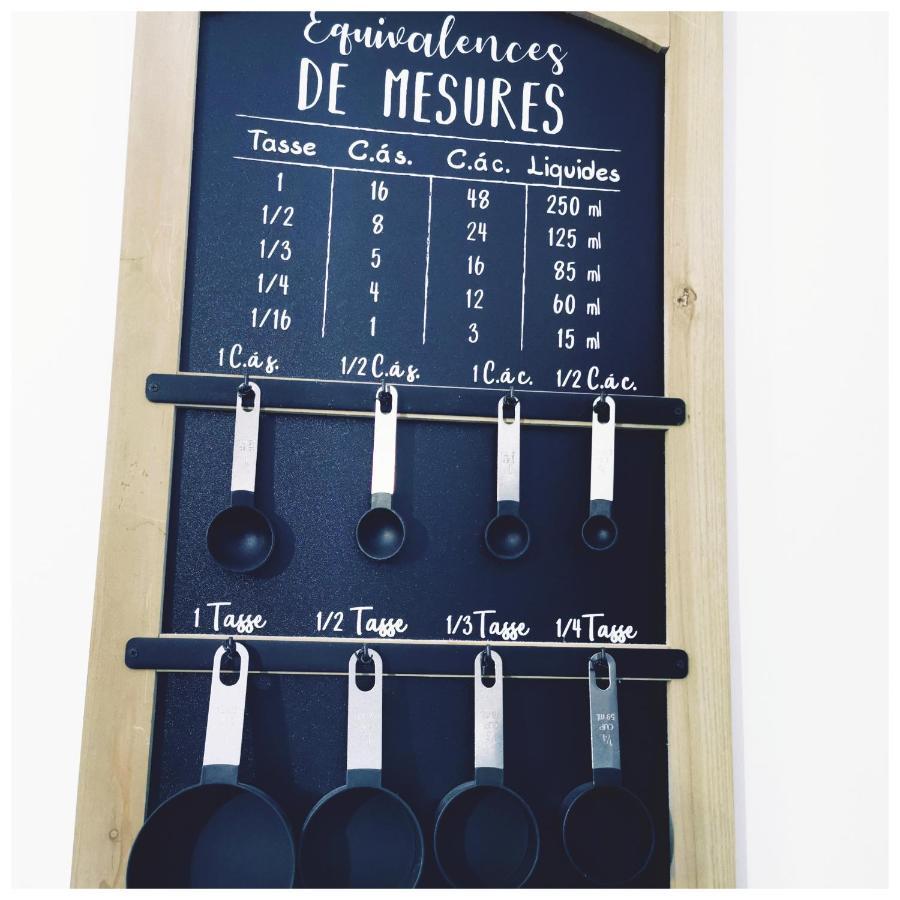 Equivalences
DE MESURES
Tasse C.á s. C.á c. Liquides
1 16 48 250 ml
1/2 8 24 125 ml
1/3 5 16 85 ml
1/4 4 12 60 ml
1/16 1 3 15 ml
1 C.á s. 1/2 C.á s. 1 C.á c. 1/2 C.á c.
1 Tasse 1/2 Tasse 1/3 Tasse 1/4 Tasse
1/4
CUP
59 ml